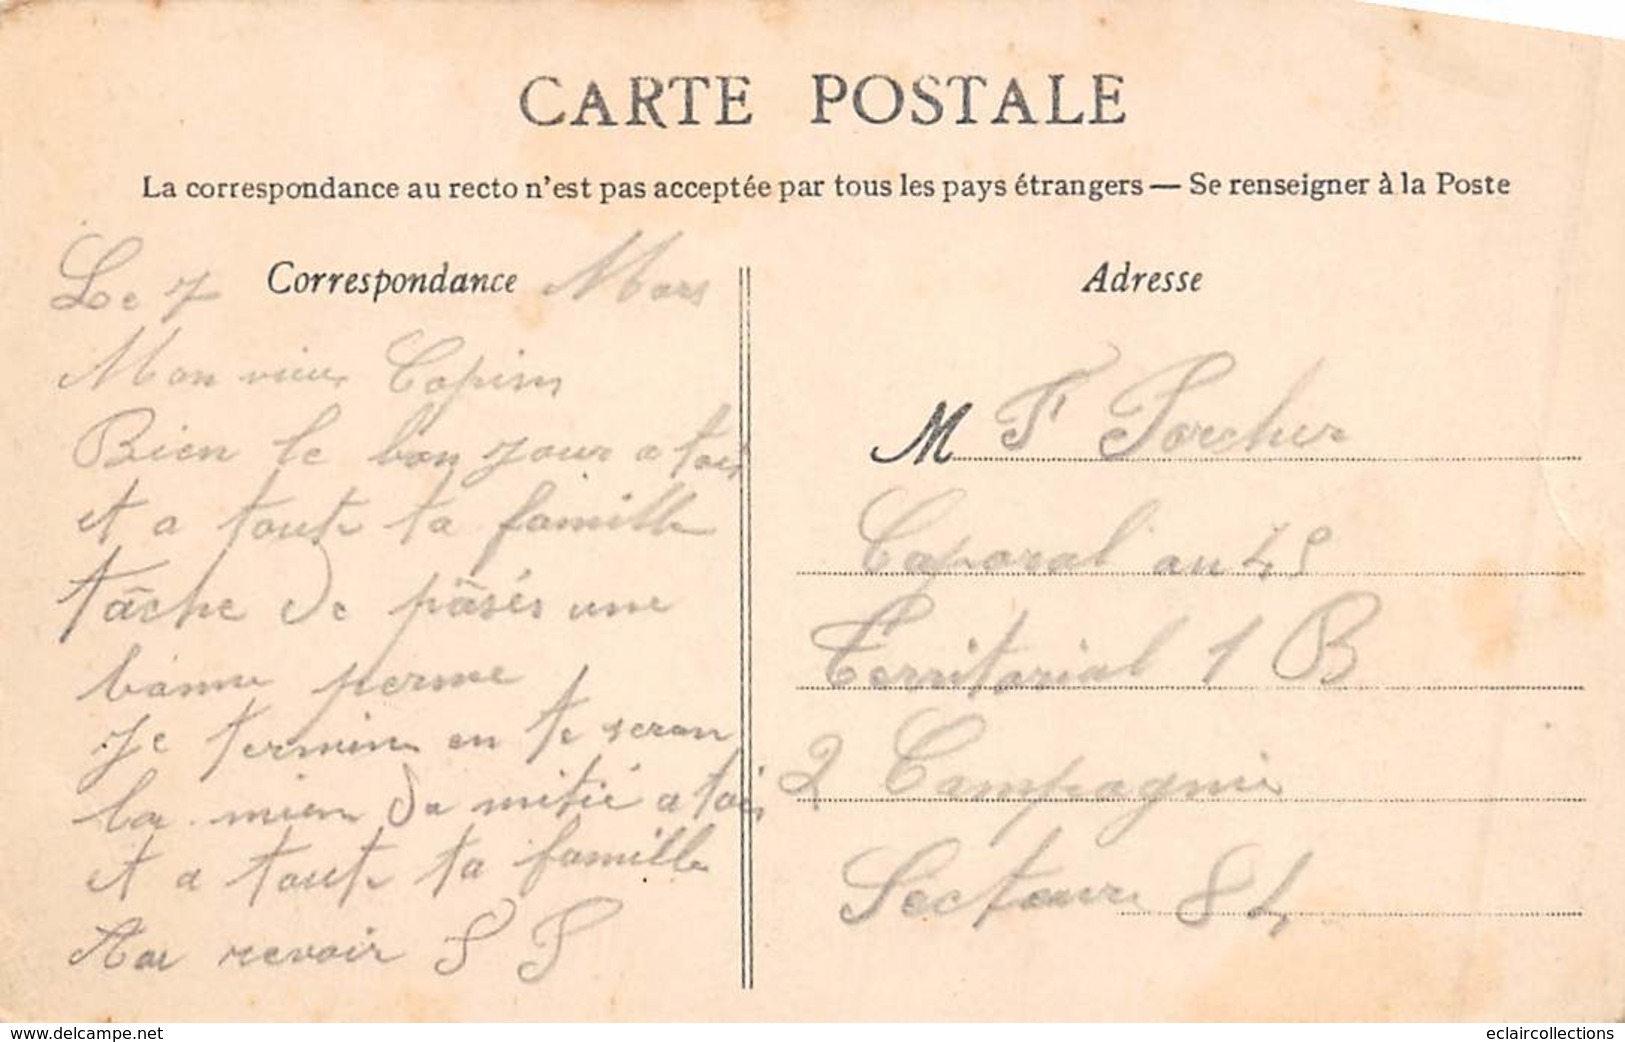 CARTE POSTALE
La correspondance au recto n'est pas acceptée par tous les pays étrangers — Se renseigner à la Poste
Correspondance
Le 7 Mars
Mon vieux Copin
Bien le bon jour a toi
et a toute ta famille
tâche de pâsés une
bonne perme
Je termine en te seran
la mien da mitié a toi
et a toute ta famille
Au revoir S P
Adresse
M F Porcher
Caporal au 45
Territorial 1 B
2 Compagnie
Secteur 84
www.delcampe.net
eclaircollections